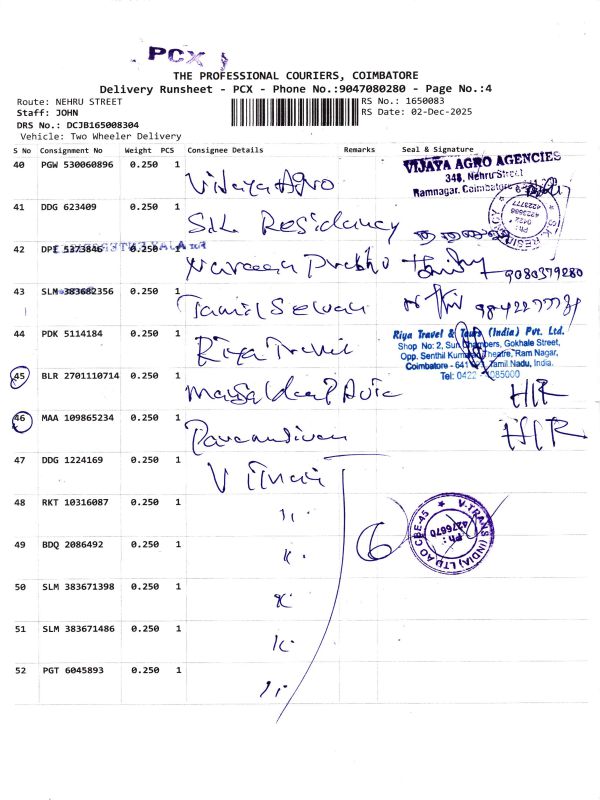 PCX
THE PROFESSIONAL COURIERS, COIMBATORE
Delivery Runsheet - PCX - Phone No.:9047080280 - Page No.:4
Route: NEHRU STREET RS No.: 1650083
Staff: JOHN RS Date: 02-Dec-2025
DRS No.: DCJB165008304
Vehicle: Two Wheeler Delivery
S No Consignment No Weight PCS Consignee Details Remarks Seal & Signature
40 PGW 530060896 0.250 1 Vijaya Agro
VIJAYA AGRO AGENCIES
348, Nehru Street
Ramnagar, Coimbatore
41 DDG 623409 0.250 1 S.K. Residency
4223777
4223888
0422
PH :
S.K. RESIDENCY
42 DPI 5373846 0.250 1 Prabhu 9080379280
43 SLM 383682356 0.250 1 Tamil Selvan
44 PDK 5114184 0.250 1 Riya Travel
Riya Travel & Tours (India) Pvt. Ltd.
Shop No: 2, Sun Chambers, Gokhale Street,
Opp. Senthil Kumaran Theatre, Ram Nagar,
Coimbatore - 641 Tamil Nadu, India.
Tel: 0422 085000
45 BLR 2701110714 0.250 1 H/R
46 MAA 109865234 0.250 1 H/R
47 DDG 1224169 0.250 1 V
48 RKT 10316087 0.250 1 "
6
V-TRANS (INDIA) LTD AO CBE-45
Ph :
4276670
49 BDQ 2086492 0.250 1 "
50 SLM 383671398 0.250 1 "
51 SLM 383671486 0.250 1 "
52 PGT 6045893 0.250 1 "